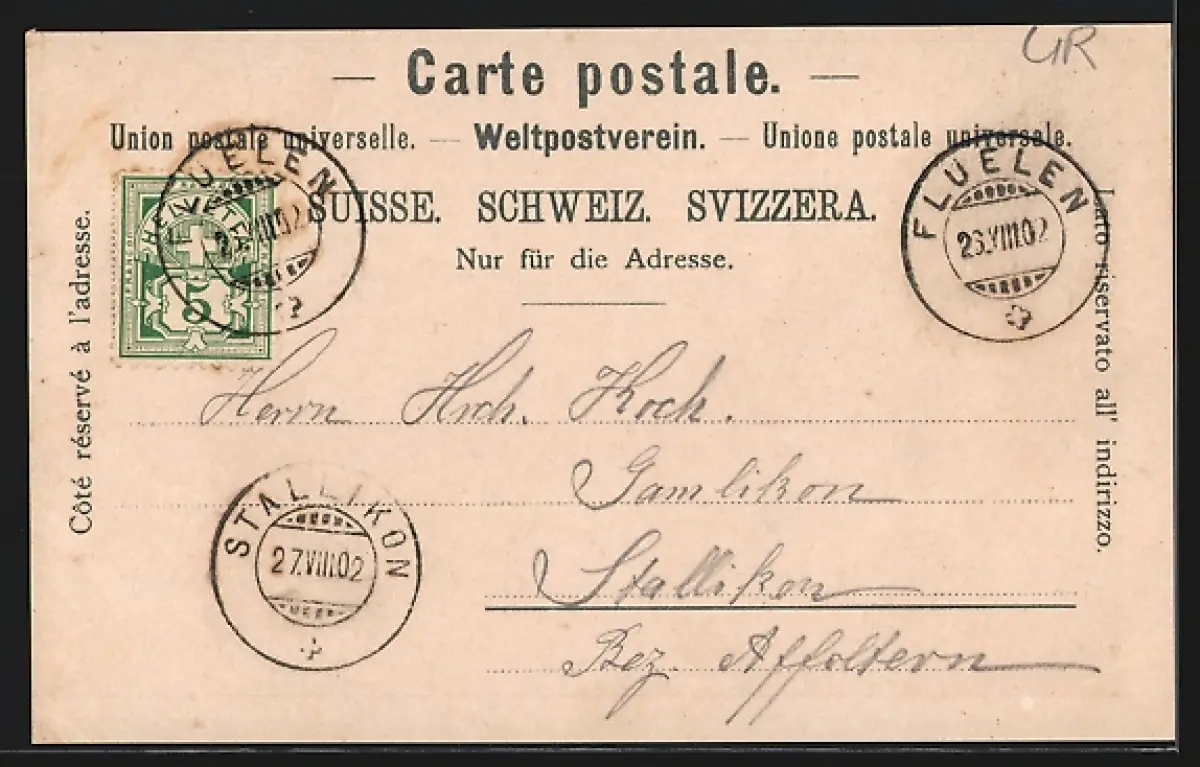 UR
— Carte postale. —
Union postale universelle. — Weltpostverein. — Unione postale universale.
SUISSE. SCHWEIZ. SVIZZERA.
Nur für die Adresse.
Côté réservé à l'adresse.
Lato riservato all' indirizzo.
FLUELEN
HELVETIA
FRANCO
5
FLUELEN
26.VIII.02
Herrn Hrch. Koch.
Gamlikon
Stallikon
Bez. Affoltern
STALLIKON
27.VIII.02